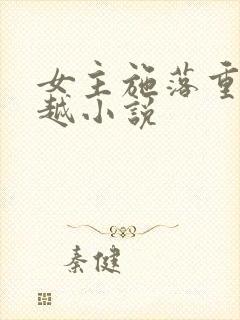 女主施落重
越小说
秦健